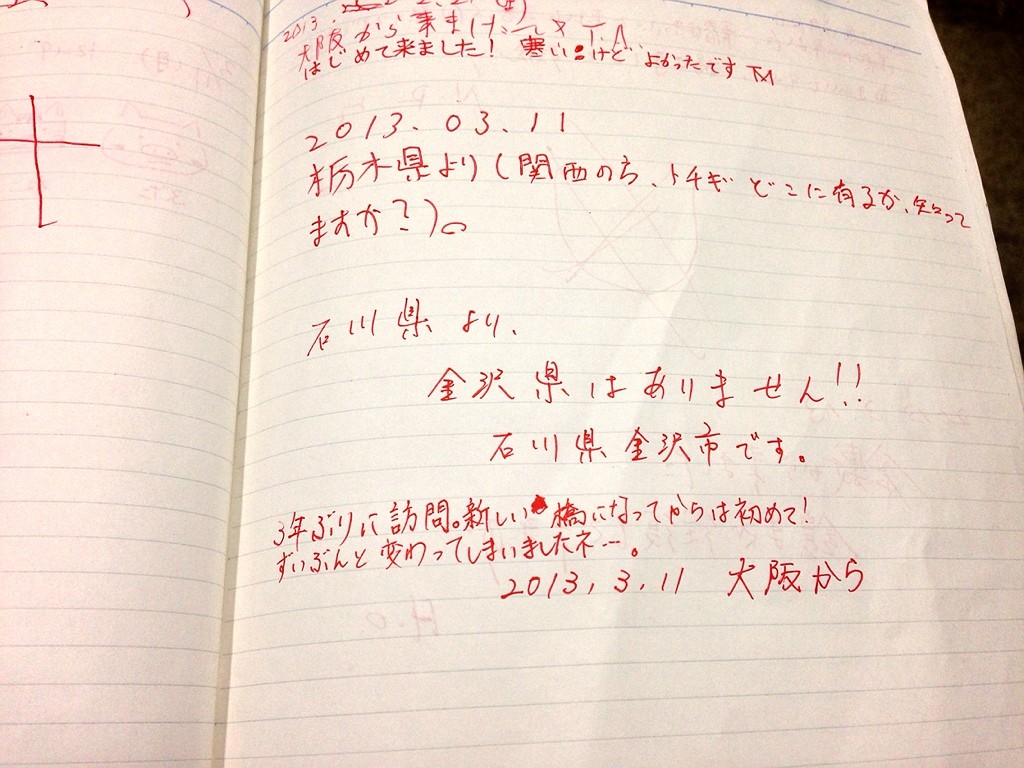 2013.
大阪から来ました T.A
はじめて来ました! 寒いけど よかったです TM
2013.03.11
栃木県より(関西の方、トチギ どこに有るか、知って
ますか?)。
石川県より、
金沢県はありません!!
石川県金沢市です。
3年ぶりに訪問。新しい橋になってからは初めて!
ずいぶんと変わってしまいましたネ…。
2013,3,11 大阪から